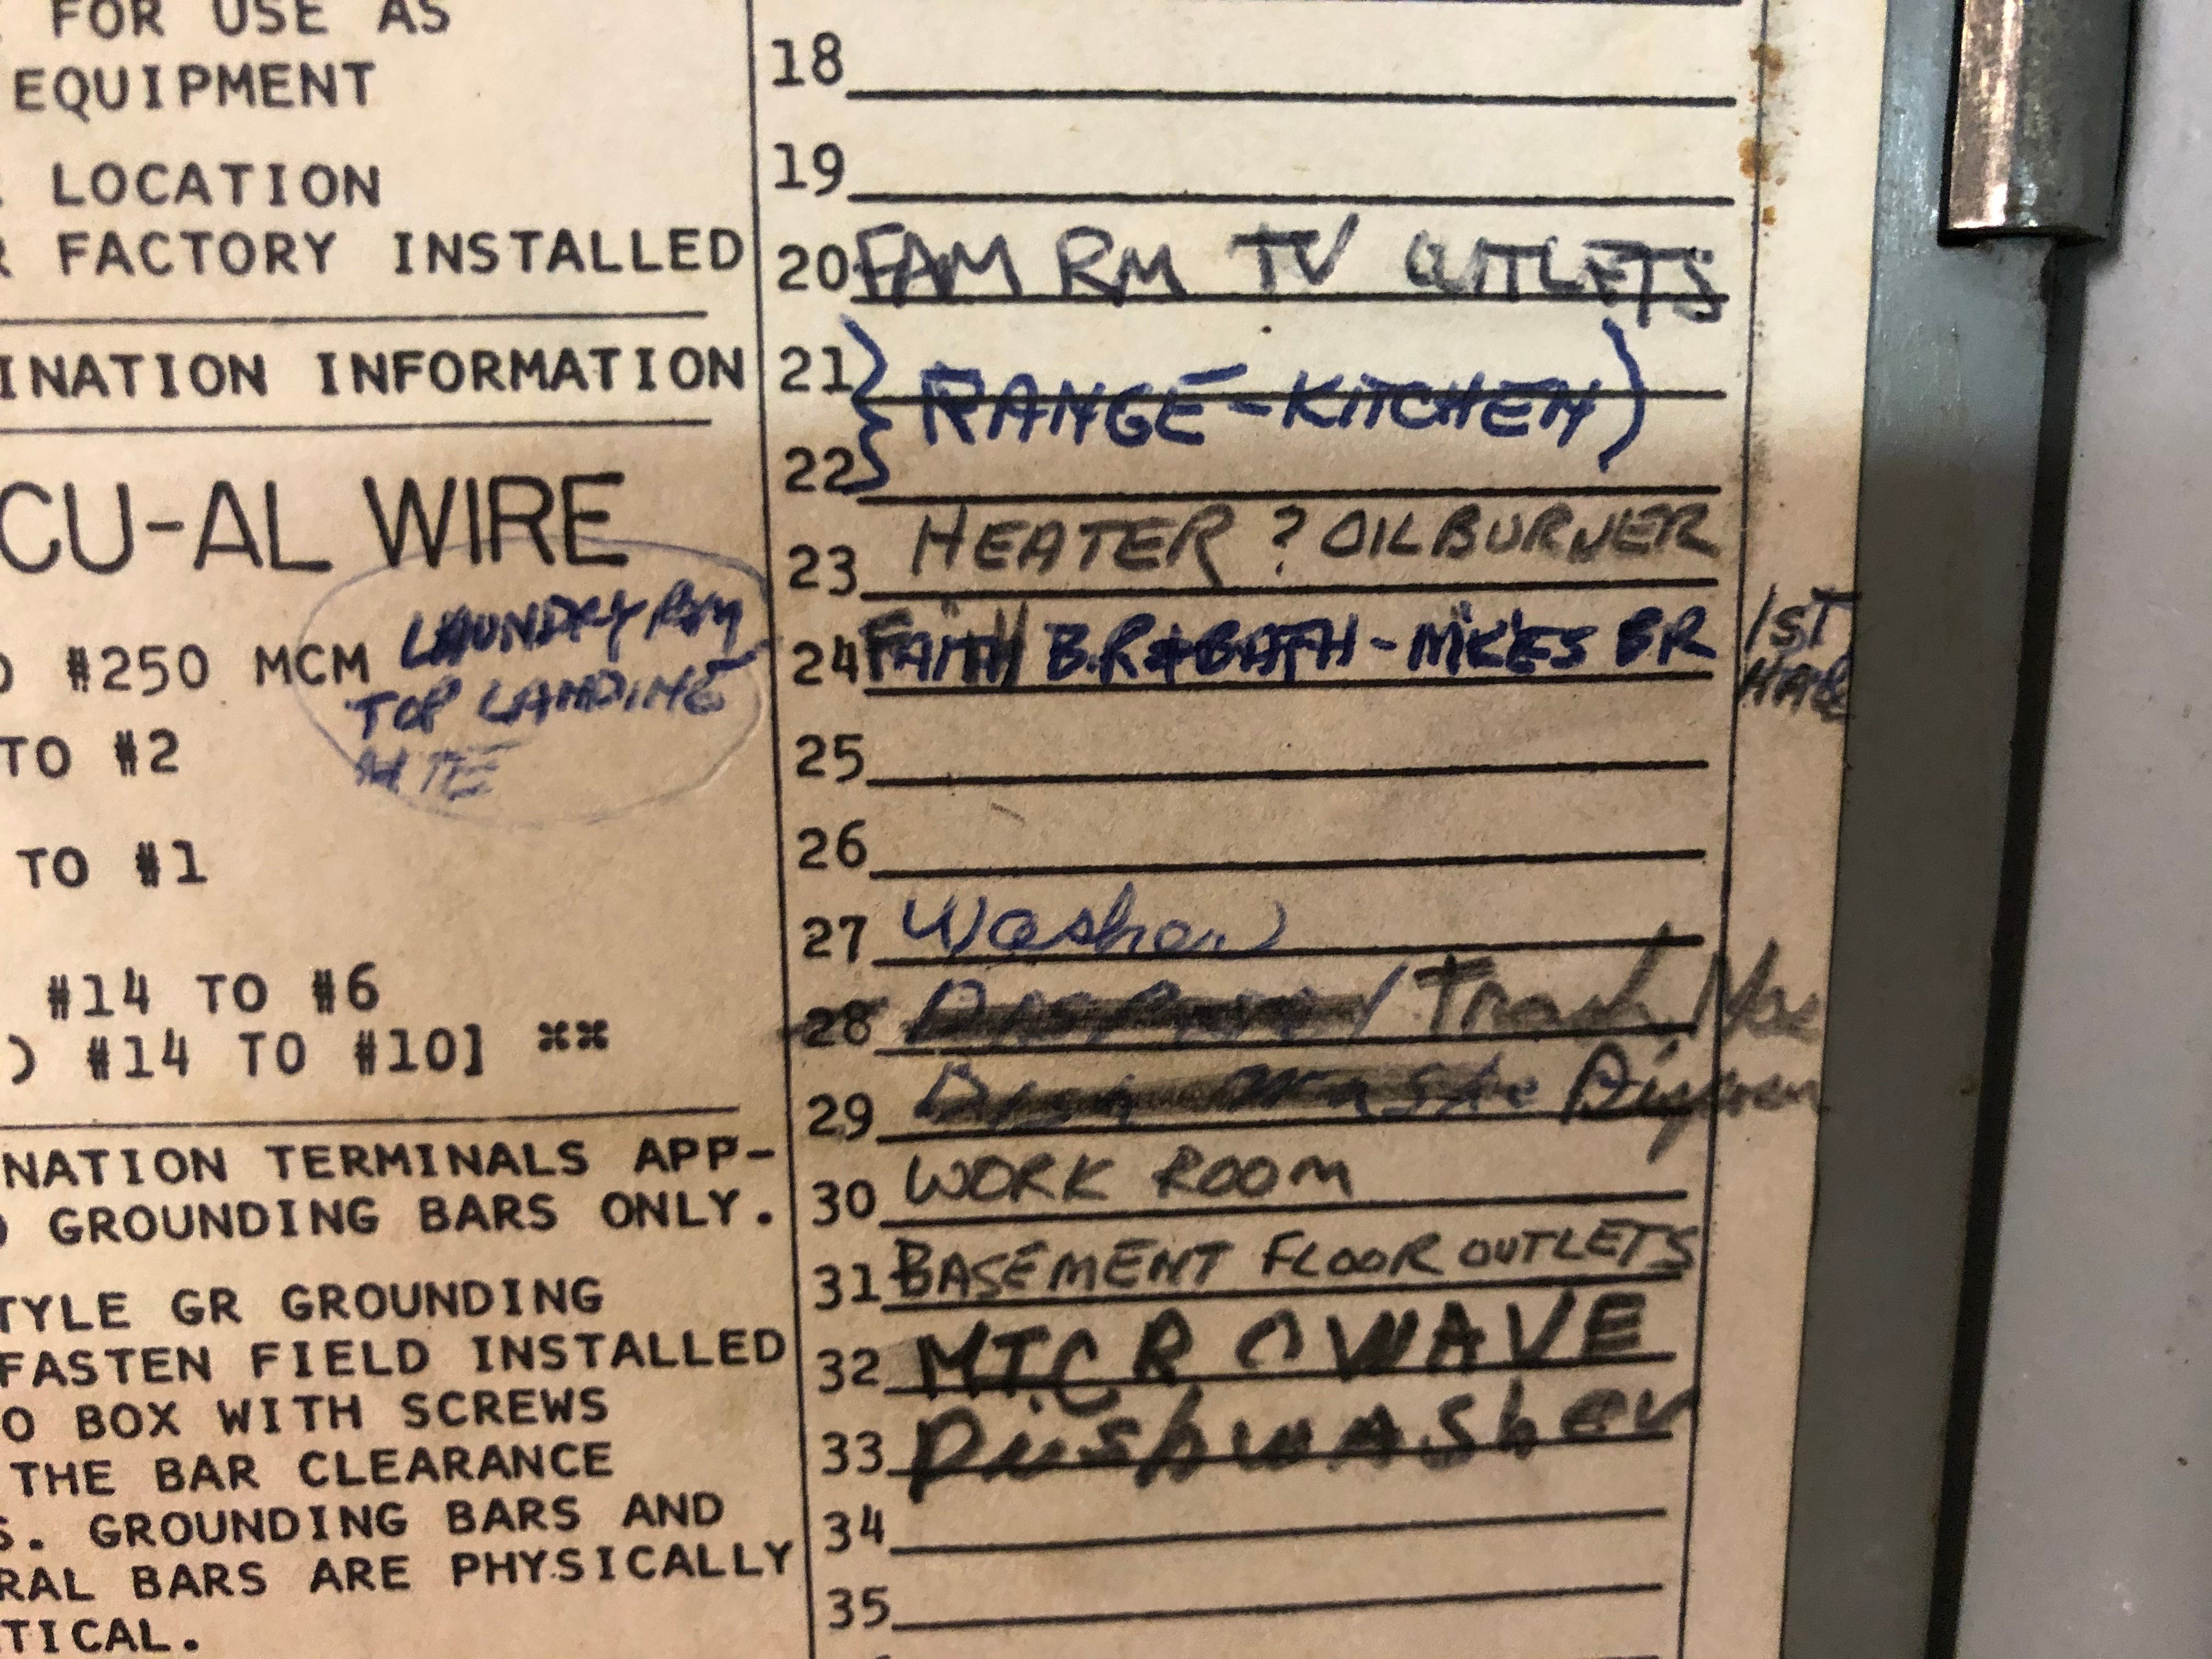 FOR USE AS
EQUIPMENT
LOCATION
R FACTORY INSTALLED
INATION INFORMATION
CU-AL WIRE
LAUNDRY RM
TOP LANDING
#250 MCM
TO #2
TO #1
#14 TO #6
) #14 TO #10] **
NATION TERMINALS APP-
GROUNDING BARS ONLY.
TYLE GR GROUNDING
FASTEN FIELD INSTALLED
O BOX WITH SCREWS
THE BAR CLEARANCE
S. GROUNDING BARS AND
RAL BARS ARE PHYSICALLY
TICAL.
18
19
20 FAM RM TV OUTLETS
21
RANGE - KITCHEN
22
23 HEATER ? OIL BURNER
24 FAITH B.R & BATH - MIKE'S BR 1ST
25
26
27 Washer
28 / Trash
29 Dish Washe
30 WORK ROOM
31 BASEMENT FLOOR OUTLETS
32 MICROWAVE
33 Dishwasher
34
35